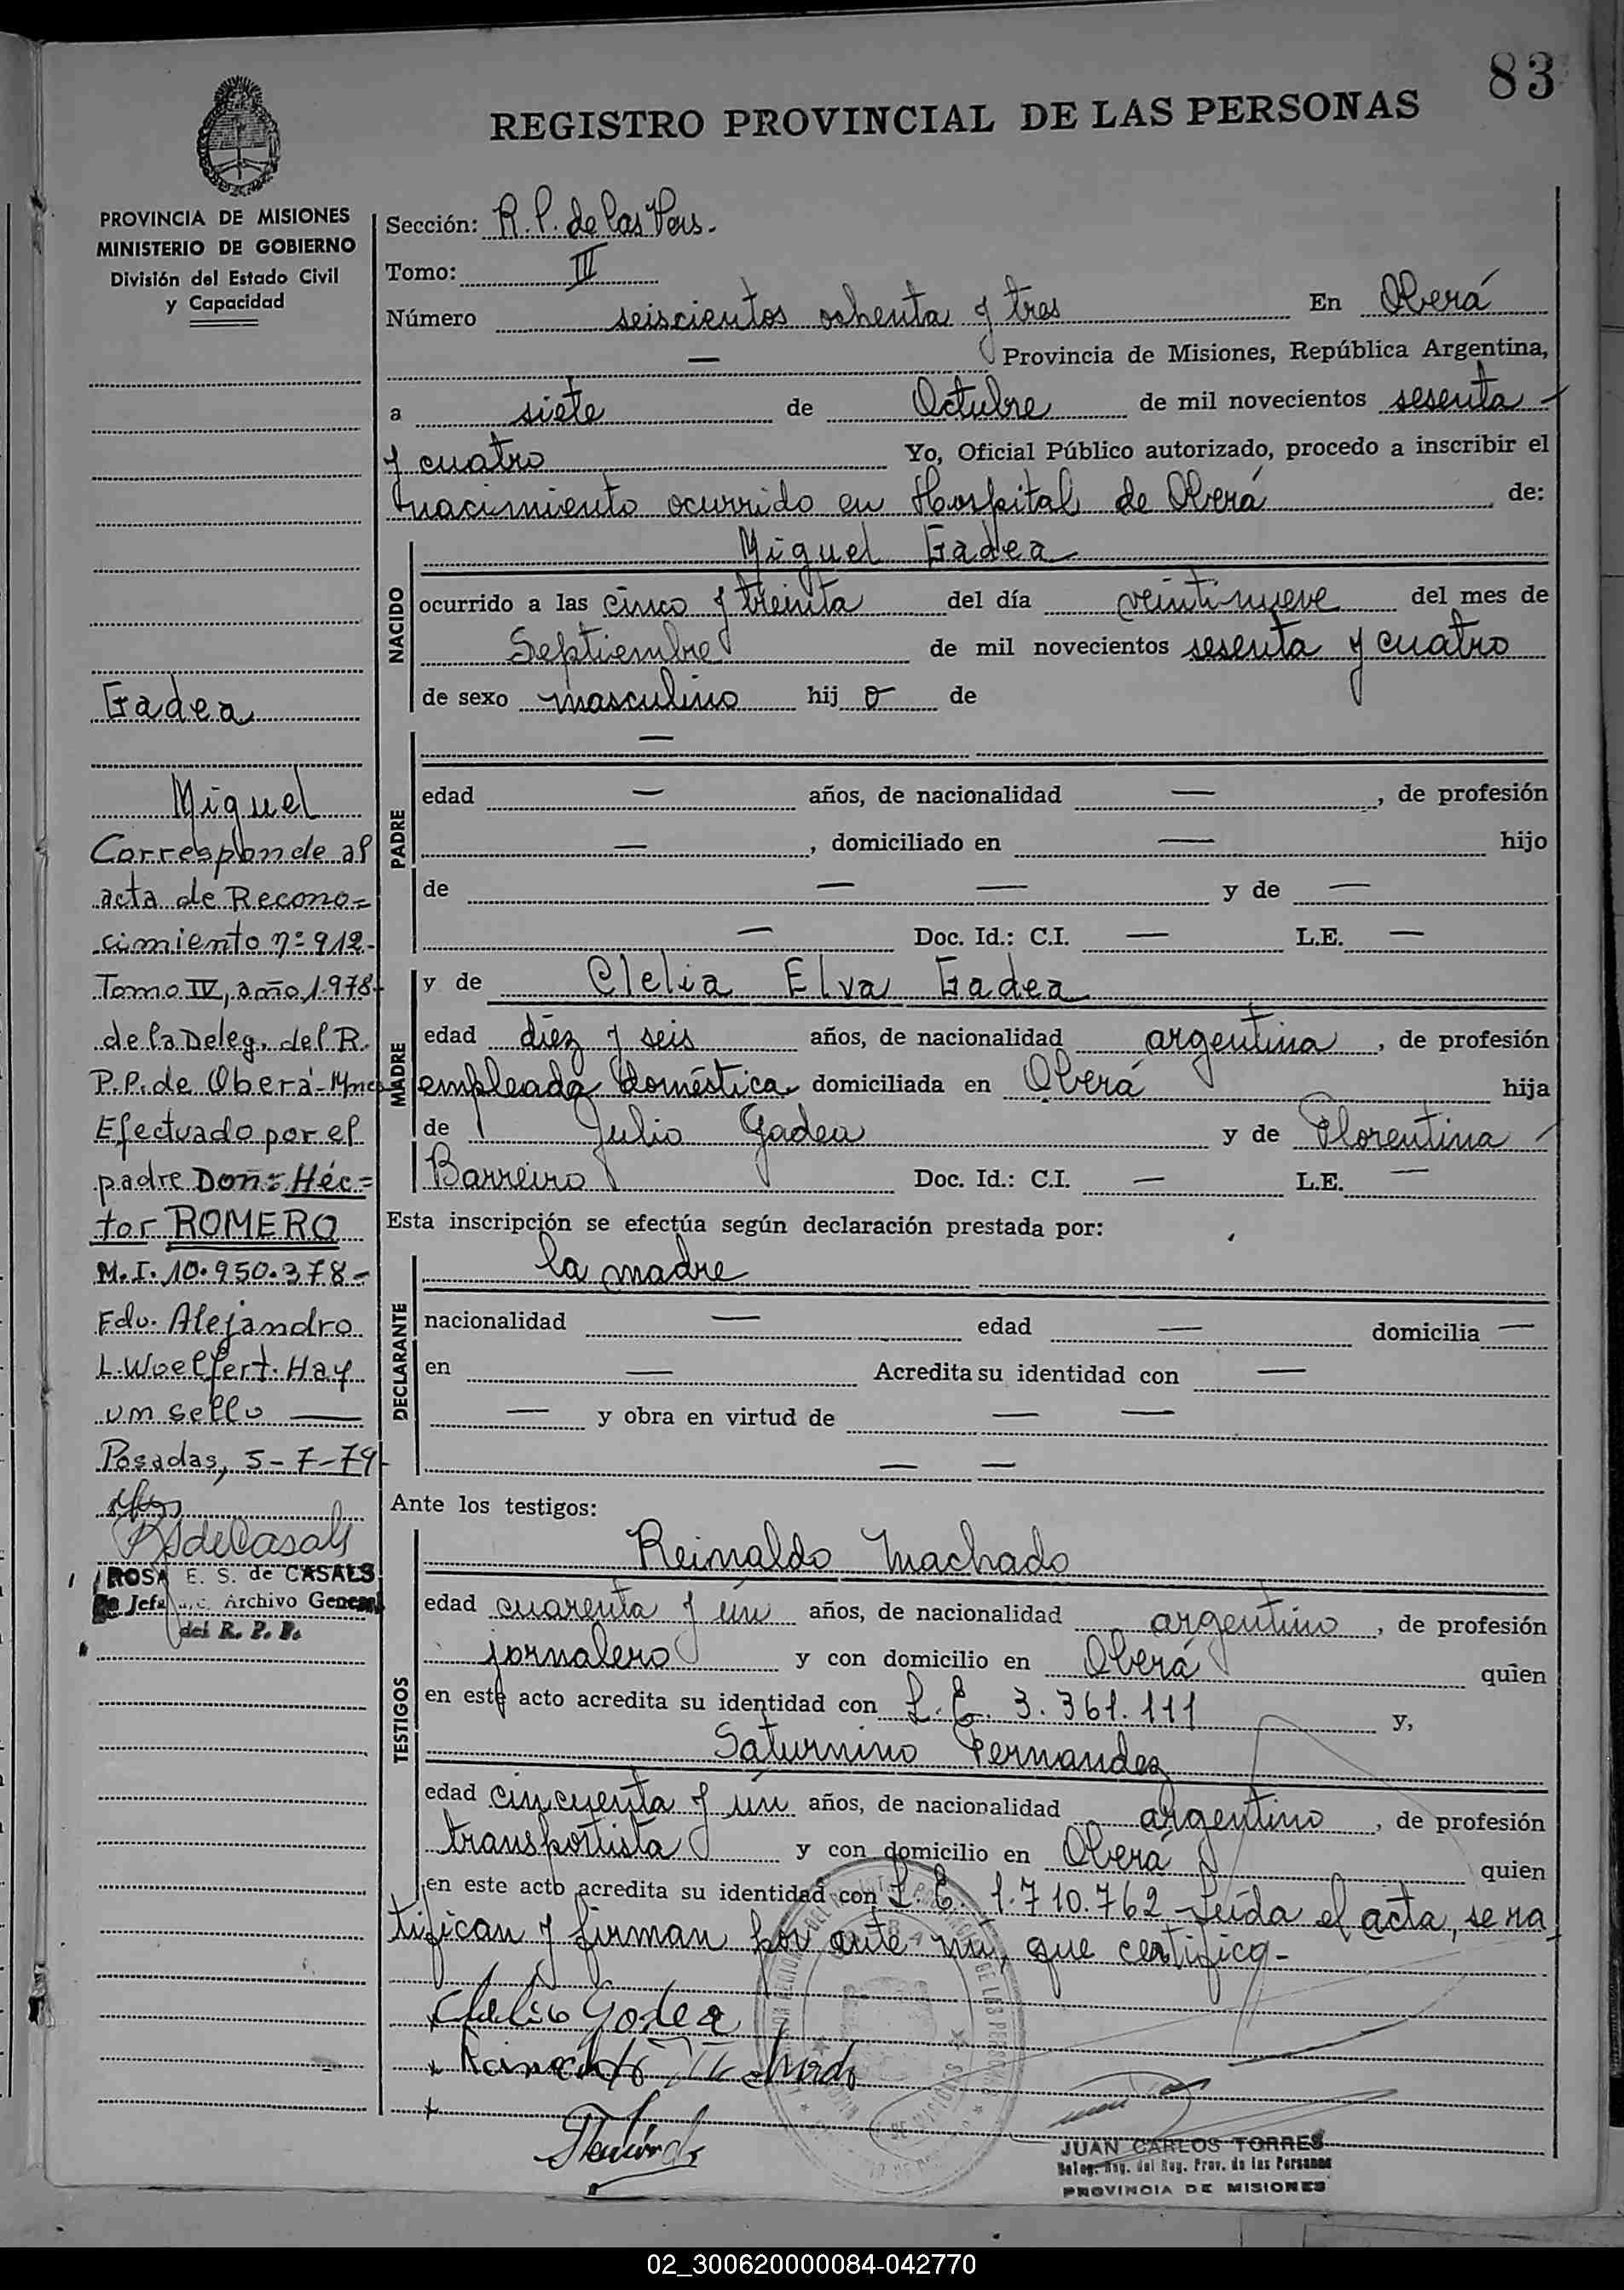 83
REGISTRO PROVINCIAL DE LAS PERSONAS
PROVINCIA DE MISIONES
MINISTERIO DE GOBIERNO
División del Estado Civil
y Capacidad
Gadea
Miguel
Corresponde al
acta de Recono=
cimiento nº 912-
Tomo IV, año 1.978-
de la Deleg. del R.
P.P. de Oberá-Mnes
Efectuado por el
padre Don: Héc=
tor ROMERO
M.I. 10.950.378-
Fdo. Alejandro
L. Woelfert. Hay
un sello —
Posadas, 5-7-79-
R S de Casals
ROSA E. S. de CASALS
Jefa Archivo General
del R. P. P.
Sección: R.P. de las Pers.
Tomo: III
Número seiscientos ochenta y tres En Oberá
— Provincia de Misiones, República Argentina,
a siete de Octubre de mil novecientos sesenta -
y cuatro Yo, Oficial Público autorizado, procedo a inscribir el
nacimiento ocurrido en Hospital de Oberá de:
NACIDO
Miguel Gadea
ocurrido a las cinco y treinta del día veintinueve del mes de
Septiembre de mil novecientos sesenta y cuatro
de sexo masculino hij o de
PADRE
—
edad — años, de nacionalidad —, de profesión
—, domiciliado en — hijo
de — — y de —
— Doc. Id.: C.I. — L.E. —
MADRE
y de Clelia Elva Gadea
edad diez y seis años, de nacionalidad argentina, de profesión
empleada doméstica domiciliada en Oberá hija
de Julio Gadea y de Florentina -
Barreiro Doc. Id.: C.I. — L.E. —
Esta inscripción se efectúa según declaración prestada por:
DECLARANTE
la madre
nacionalidad — edad — domicilia —
en — Acredita su identidad con —
— y obra en virtud de — —
— —
Ante los testigos:
TESTIGOS
Reinaldo Machado
edad cuarenta y ún años, de nacionalidad argentino, de profesión
jornalero y con domicilio en Oberá quien
en este acto acredita su identidad con L.E. 3.361.111 y,
Saturnino Fernandez
edad cincuenta y ún años, de nacionalidad argentino, de profesión
transportista y con domicilio en Oberá quien
en este acto acredita su identidad con L.E. 1.710.762 Leída el acta, se ra
tifican y firman por ante mi, que certifico-
Clelia Gadea
Reinaldo Machado
JUAN CARLOS TORRES
Deleg. Reg. del Reg. Prov. de las Personas
PROVINCIA DE MISIONES
02_300620000084-042770